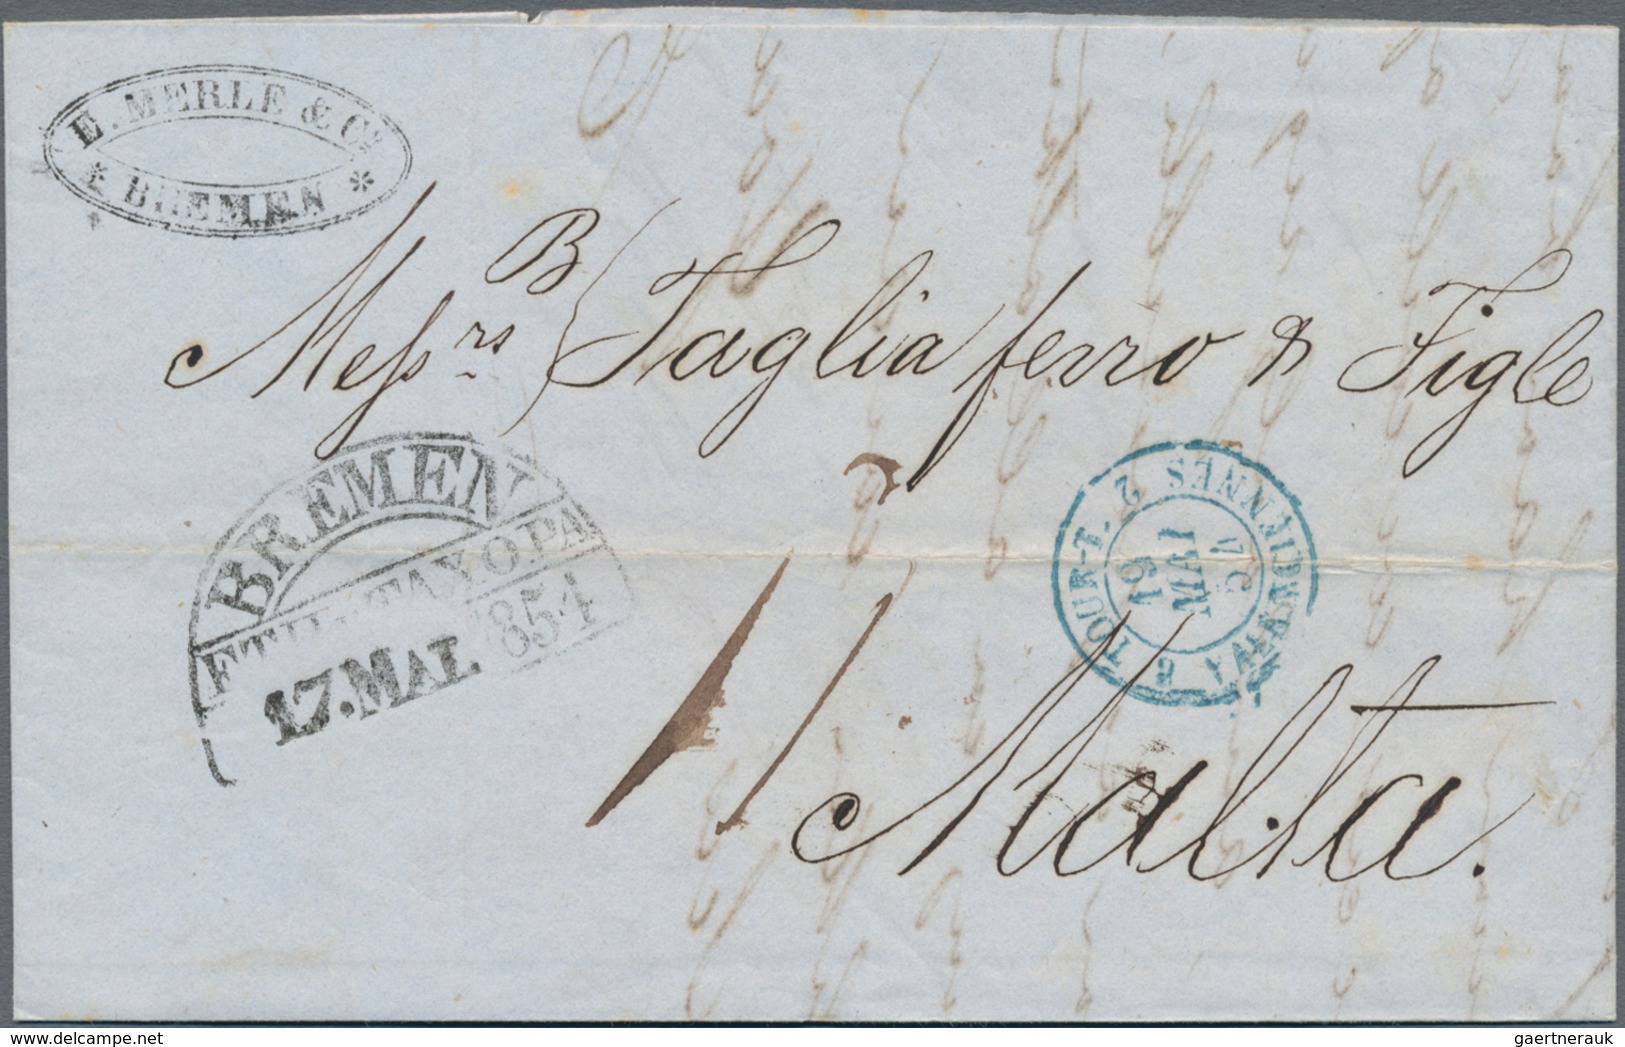 E. MERLE & Co
* BREMEN *
B
Messrs Tagliaferro & Figle
BREMEN
FTH:TAXO.PA
17. MAI. 1854
TOUR-T. 2 VALENCIENNES 2
19
MAI
54
11
Malta.
gaertnerauk